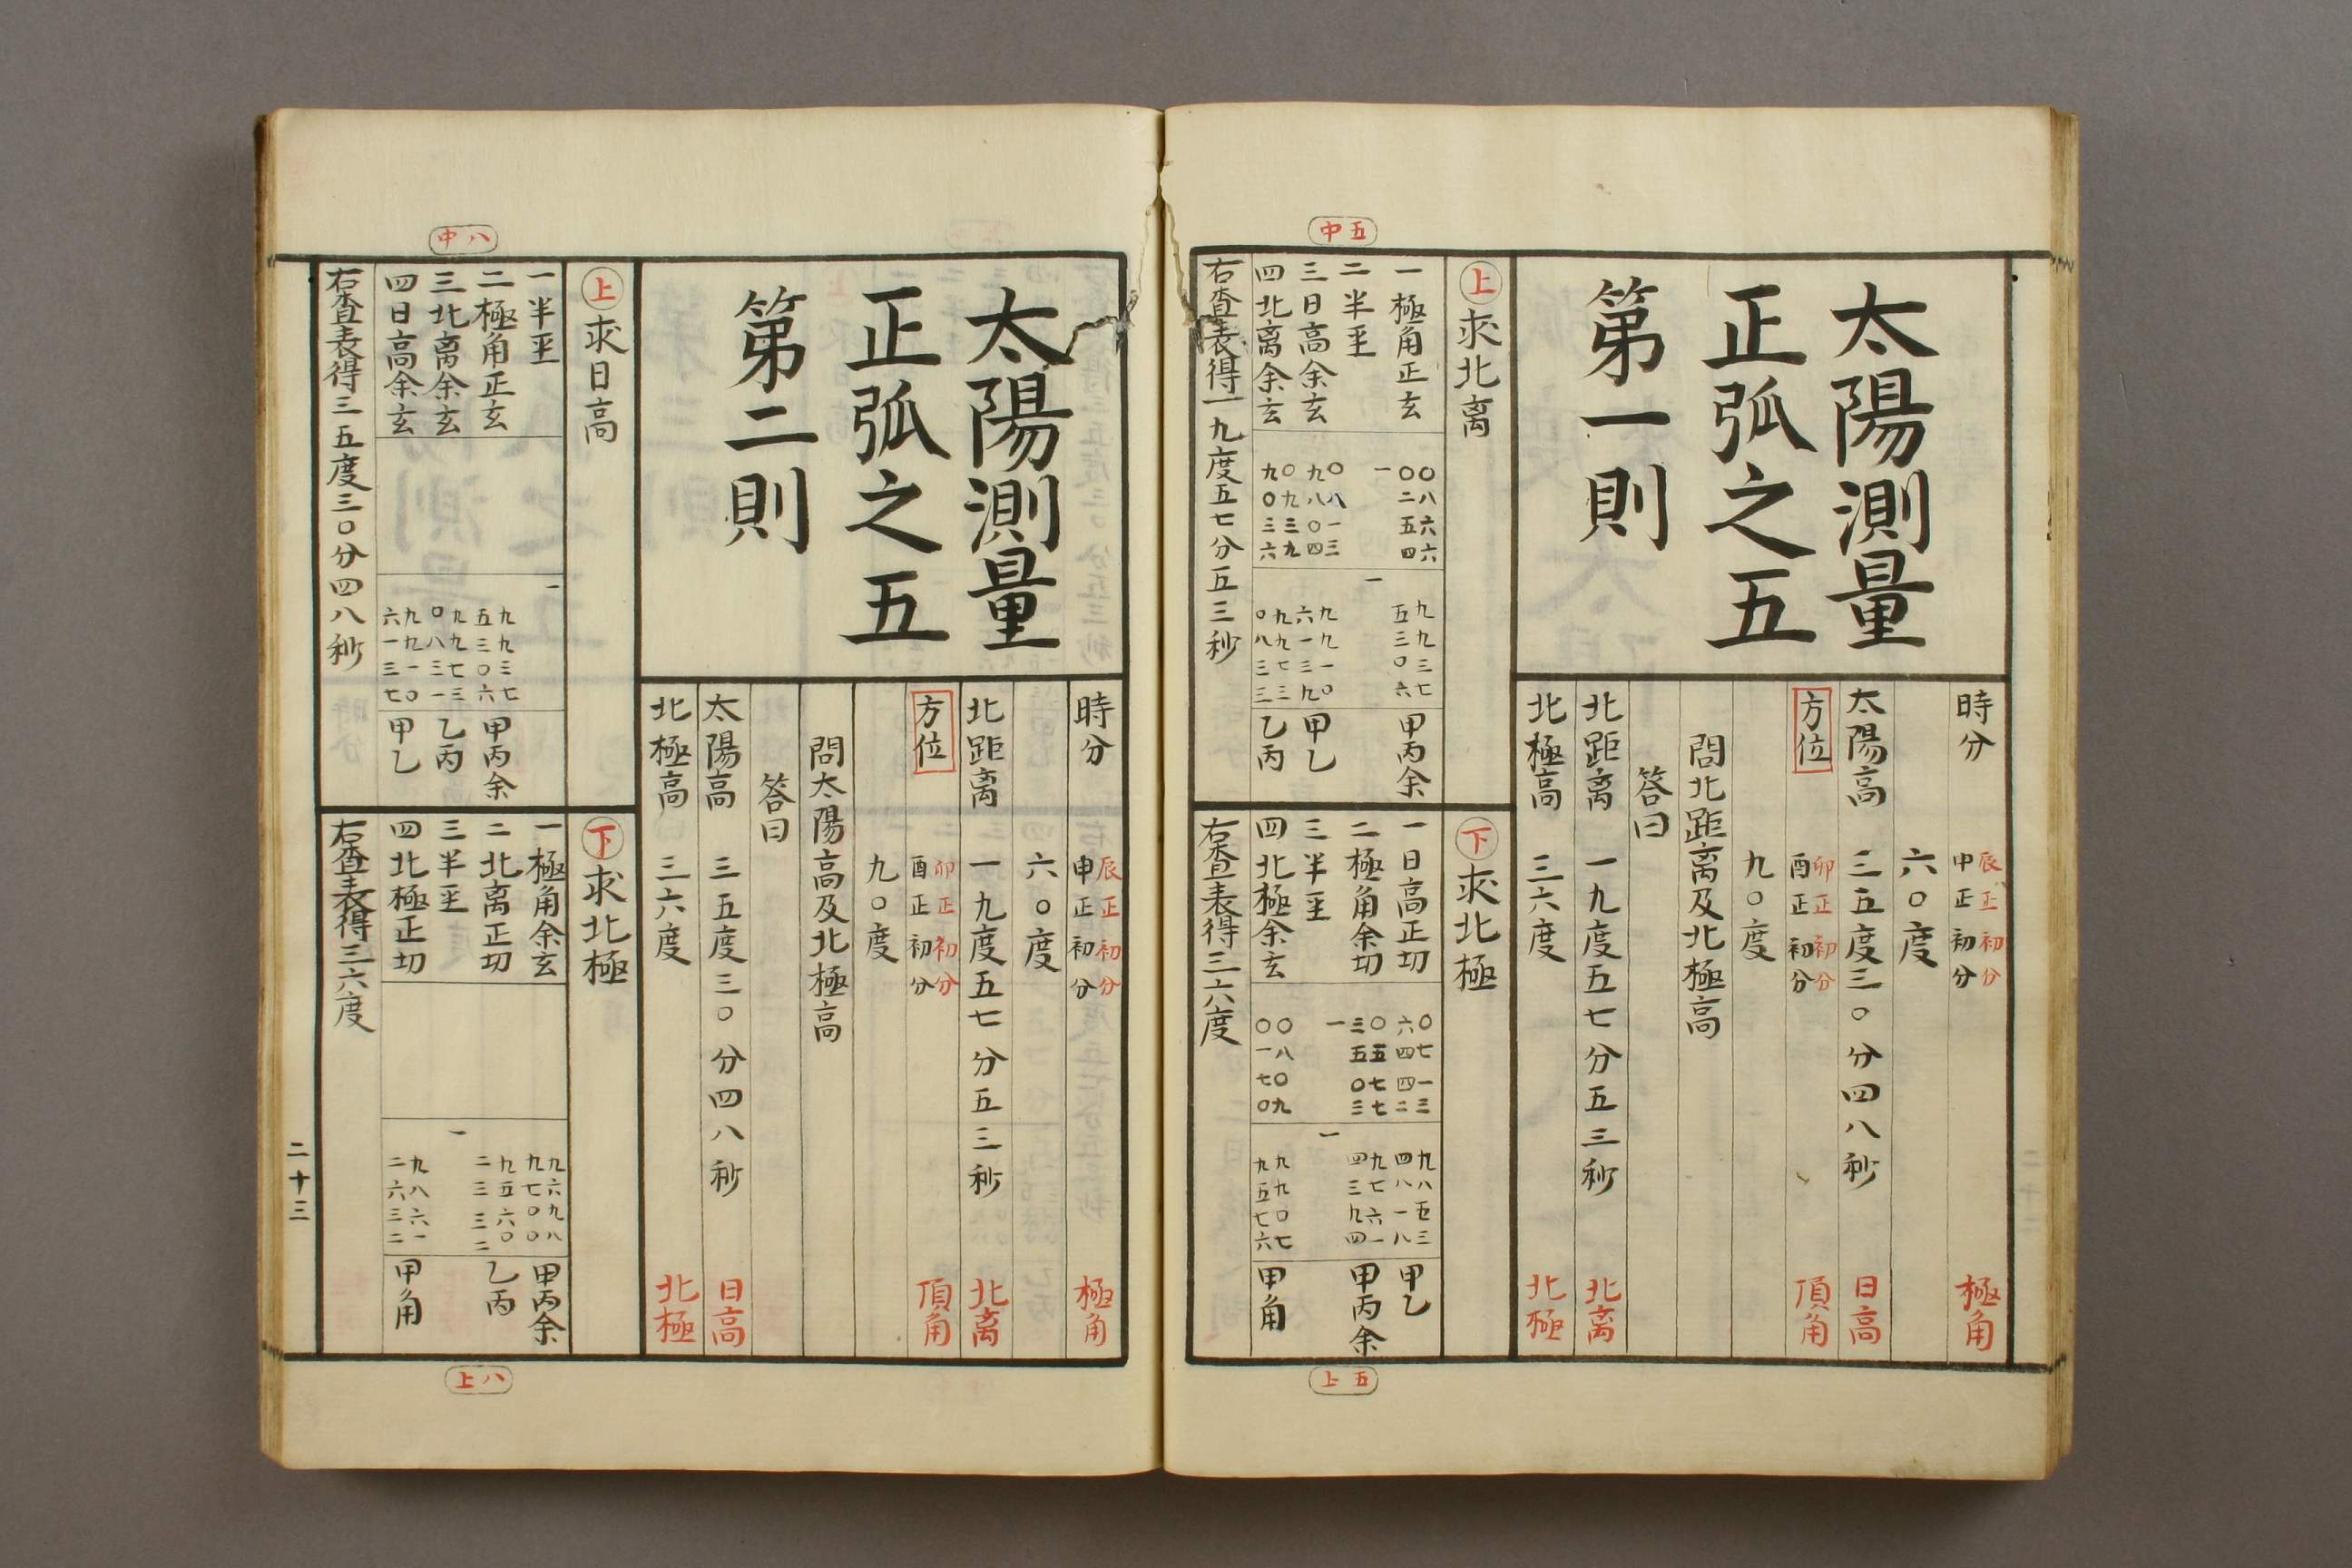 五中
太陽測量
正弧之五
第一則
時分
辰正初分
申正初分
極角
六〇度
太陽高
三五度三〇分四八秒
日高
方位
卯正初分
酉正初分
頂角
九〇度
問北距离及北極高
答曰
北距离
一九度五七分五三秒
北离
北極高
三六度
北極
上求北离
一極角正玄
〇八六六
〇二五四
九九三七
五三〇六
甲丙余
二半坙
一
一
三日高余玄
〇八一三
九八〇四
九九一〇
六一三九
甲乙
四北离余玄
〇九三九
九〇三六
九九七三
〇八三三
乙丙
右查表得一九度五七分五三秒
下求北極
一日高正切
〇七一三
六四四二
九八五三
四八一八
甲乙
二極角余切
〇五七七
三五〇三
九七六一
四三九四
甲丙余
三半坙
一
一
四北極余玄
〇八〇九
〇一七〇
九九〇七
九五七六
甲角
右查表得三六度
五上
八中
太陽測量
正弧之五
第二則
時分
辰正初分
申正初分
極角
六〇度
北距离
一九度五七分五三秒
北离
方位
卯正初分
酉正初分
頂角
九〇度
問太陽高及北極高
答曰
太陽高
三五度三〇分四八秒
日高
北極高
三六度
北極
上求日高
一半坙
一
二極角正玄
九九三七
五三〇六
甲丙余
三北离余玄
九九七三
〇八三一
乙丙
四日高余玄
九九一〇
六一三七
甲乙
右查表得三五度三〇分四八秒
下求北極
一極角余玄
九六九八
九七〇〇
甲丙余
二北离正切
九五六〇
二三三二
乙丙
三半坙
一
四北極正切
九八六一
二六三二
甲角
右查表得三六度
八上
二十三